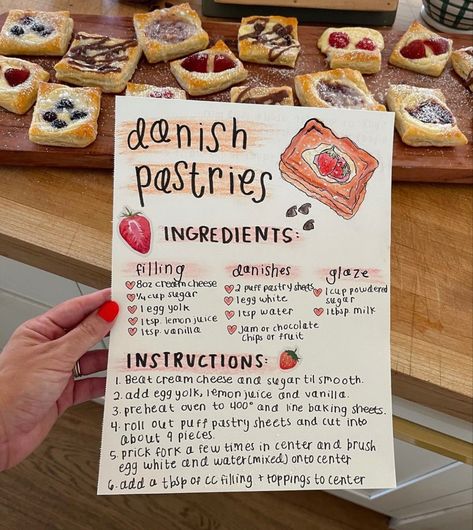 danish
pastries
INGREDIENTS:
filling
8oz cream cheese
1/4 cup sugar
1 egg yolk
1 tsp. lemon juice
1 tsp. vanilla
danishes
2 puff pastry sheets
1 egg white
1 tsp water
Jam or chocolate
chips or fruit
glaze
1 cup powdered
sugar
1 tbsp milk
INSTRUCTIONS:
1. Beat cream cheese and sugar til smooth.
2. add egg yolk, lemon juice and vanilla.
3. preheat oven to 400° and line baking sheets.
4. roll out puff pastry sheets and cut into
about 9 pieces.
5. prick fork a few times in center and brush
egg white and water (mixed) onto center
6. add a tbsp of cc filling + toppings to center